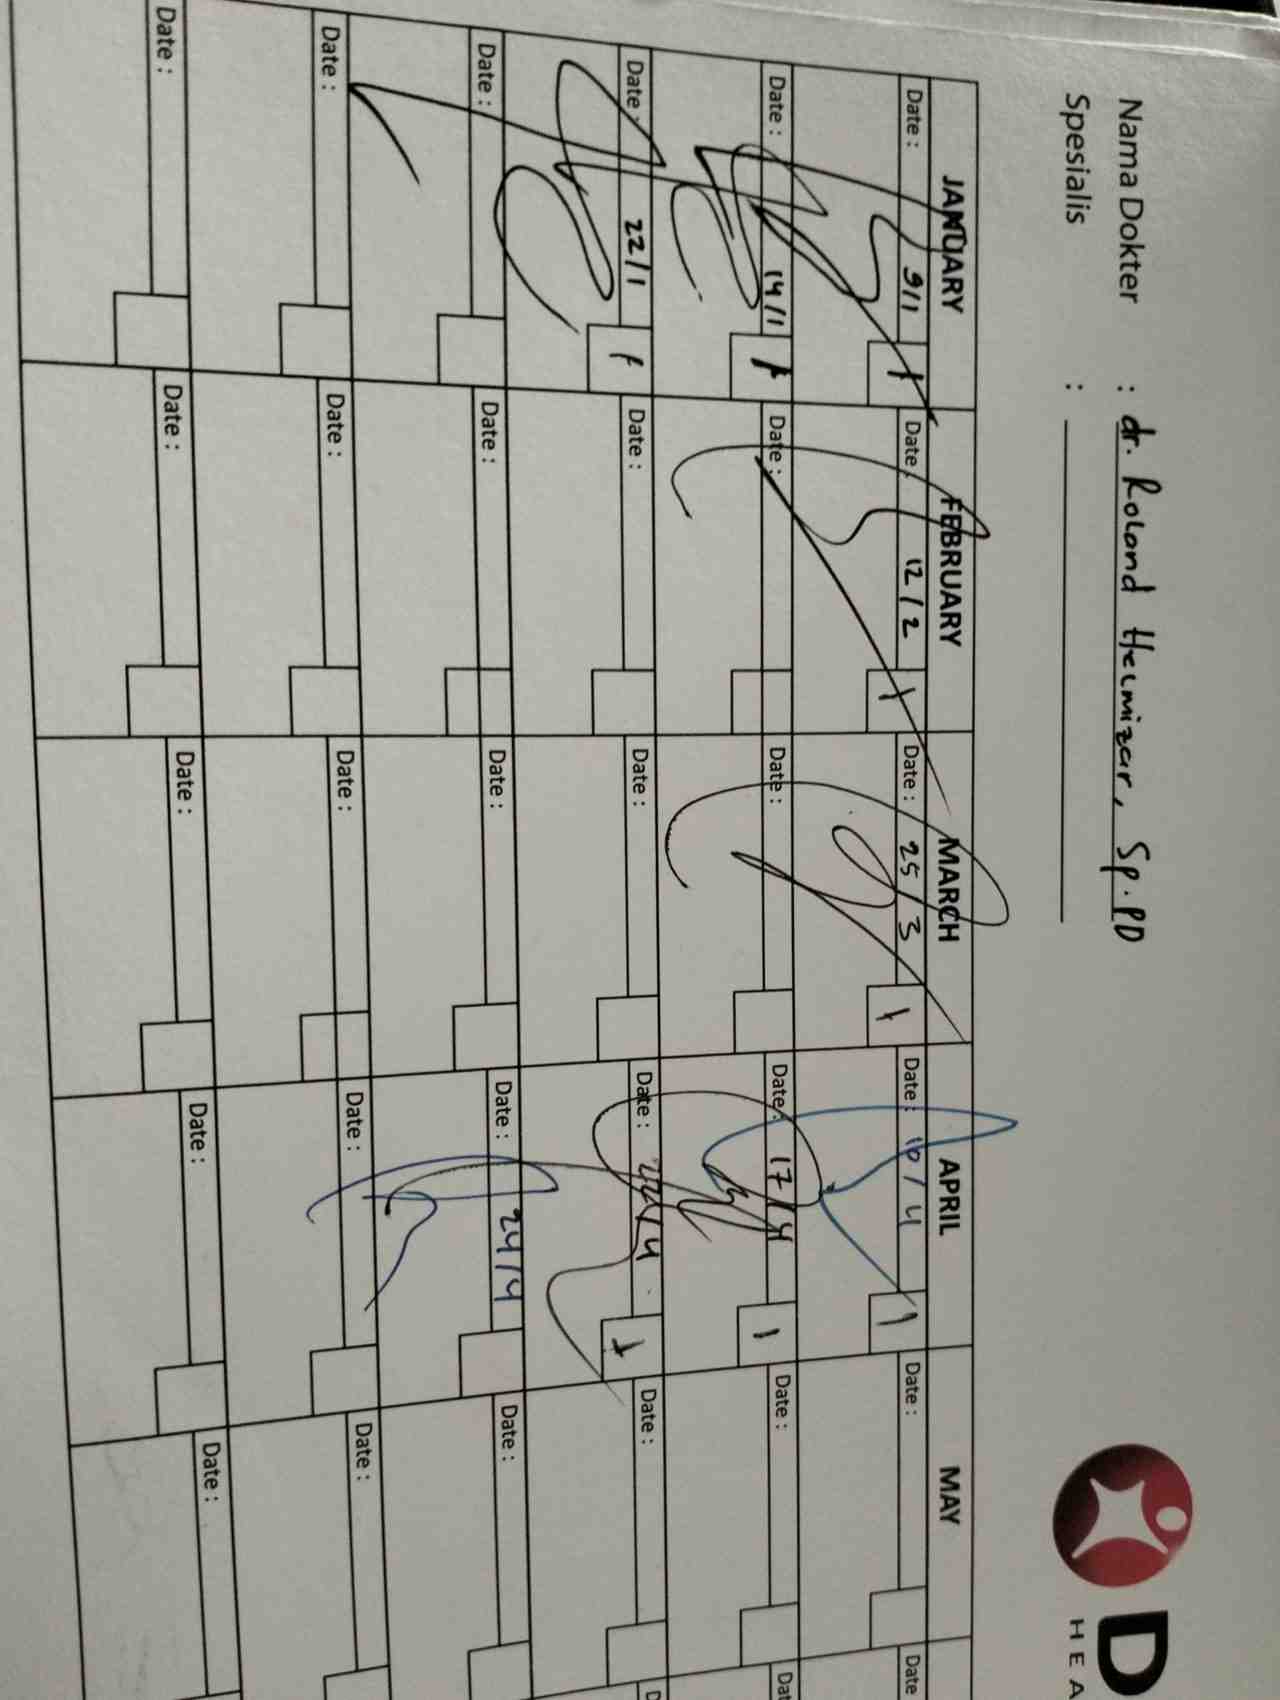 Nama Dokter : dr. Roland Helmizar, Sp.PD
Spesialis :
D
HEA
JANUARY FEBRUARY MARCH APRIL MAY
Date : 9/1 1 Date : 12/2 1 Date : 25/3 1 Date : 10/4 1 Date : Date
Date : 14/1 1 Date : Date : Date : 17/4 1 Date : Dat
Date : 22/1 1 Date : Date : Date : 22/4 1 Date : D
Date : Date : Date : Date : 24/4 Date :
Date : Date : Date : Date : Date :
Date : Date : Date : Date : Date :